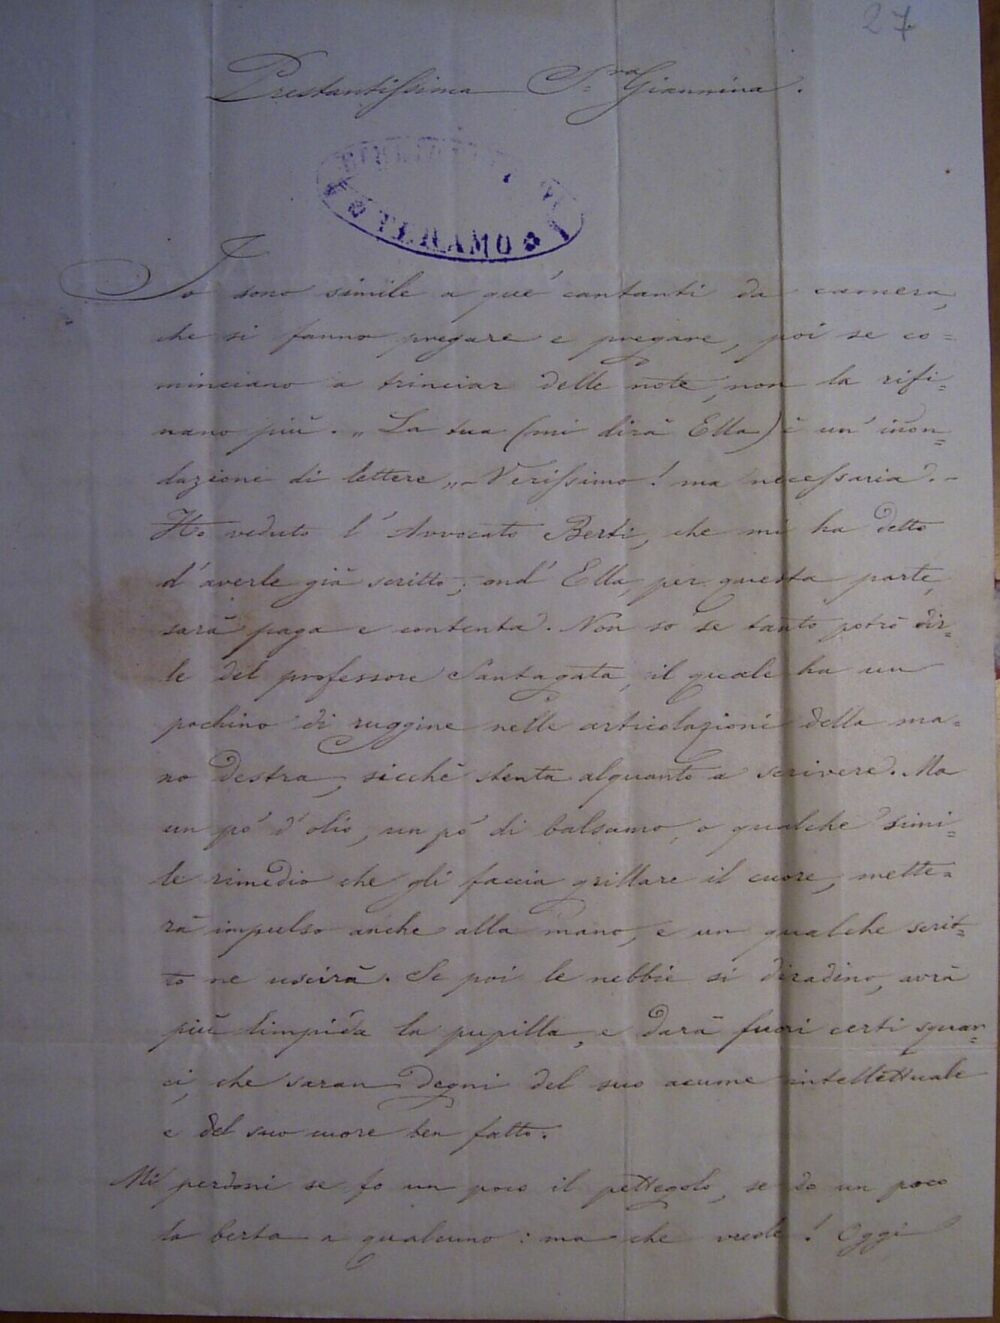 27
Prestantissima S.ra Giannina.
TERAMO
Io sono simile a que' cantanti da camera,
che si fanno pregare e pregare, poi se co=
minciano a trinciar delle note, non la rifi=
nano più. „ La tua (mi dirà Ella) è un' inon=
dazione di lettere „ - Verissimo! ma necessaria. -
Ho veduto l' Avvocato Berti, che mi ha detto
d' averle già scritto; ond' Ella, per questa parte,
sarà paga e contenta. Non so se tanto potrò dir=
le del professore Santagata, il quale ha un
pochino di ruggine nelle articolazioni della ma=
no destra, sicchè stenta alquanto a scrivere. Ma
un pò d' olio, un pò di balsamo, o qualche simi=
le rimedio che gli faccia grillare il cuore, mette=
rà impulso anche alla mano, e un qualche scrit=
to ne uscirà. Se poi le nebbie si diradino, avrà
più limpida la pupilla, e darà fuori certi squar=
ci, che saran degni del suo acume intellettuale
e del suo cuore ben fatto.
Mi perdoni se fo un poco il pettegolo, se do un poco
la berta a qualcuno: ma che vuole! Oggi